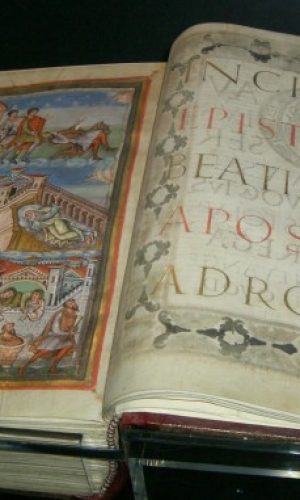 INCI
EPIST
BEATI
APOS
ADRO